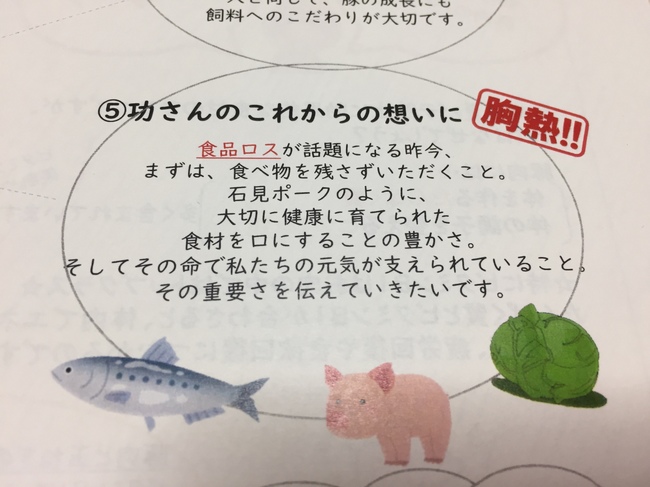 飼料へのこだわりが大切です。
⑤功さんのこれからの想いに
胸熱!!
食品ロスが話題になる昨今、
まずは、食べ物を残さずいただくこと。
石見ポークのように、
大切に健康に育てられた
食材を口にすることの豊かさ。
そしてその命で私たちの元気が支えられていること。
その重要さを伝えていきたいです。